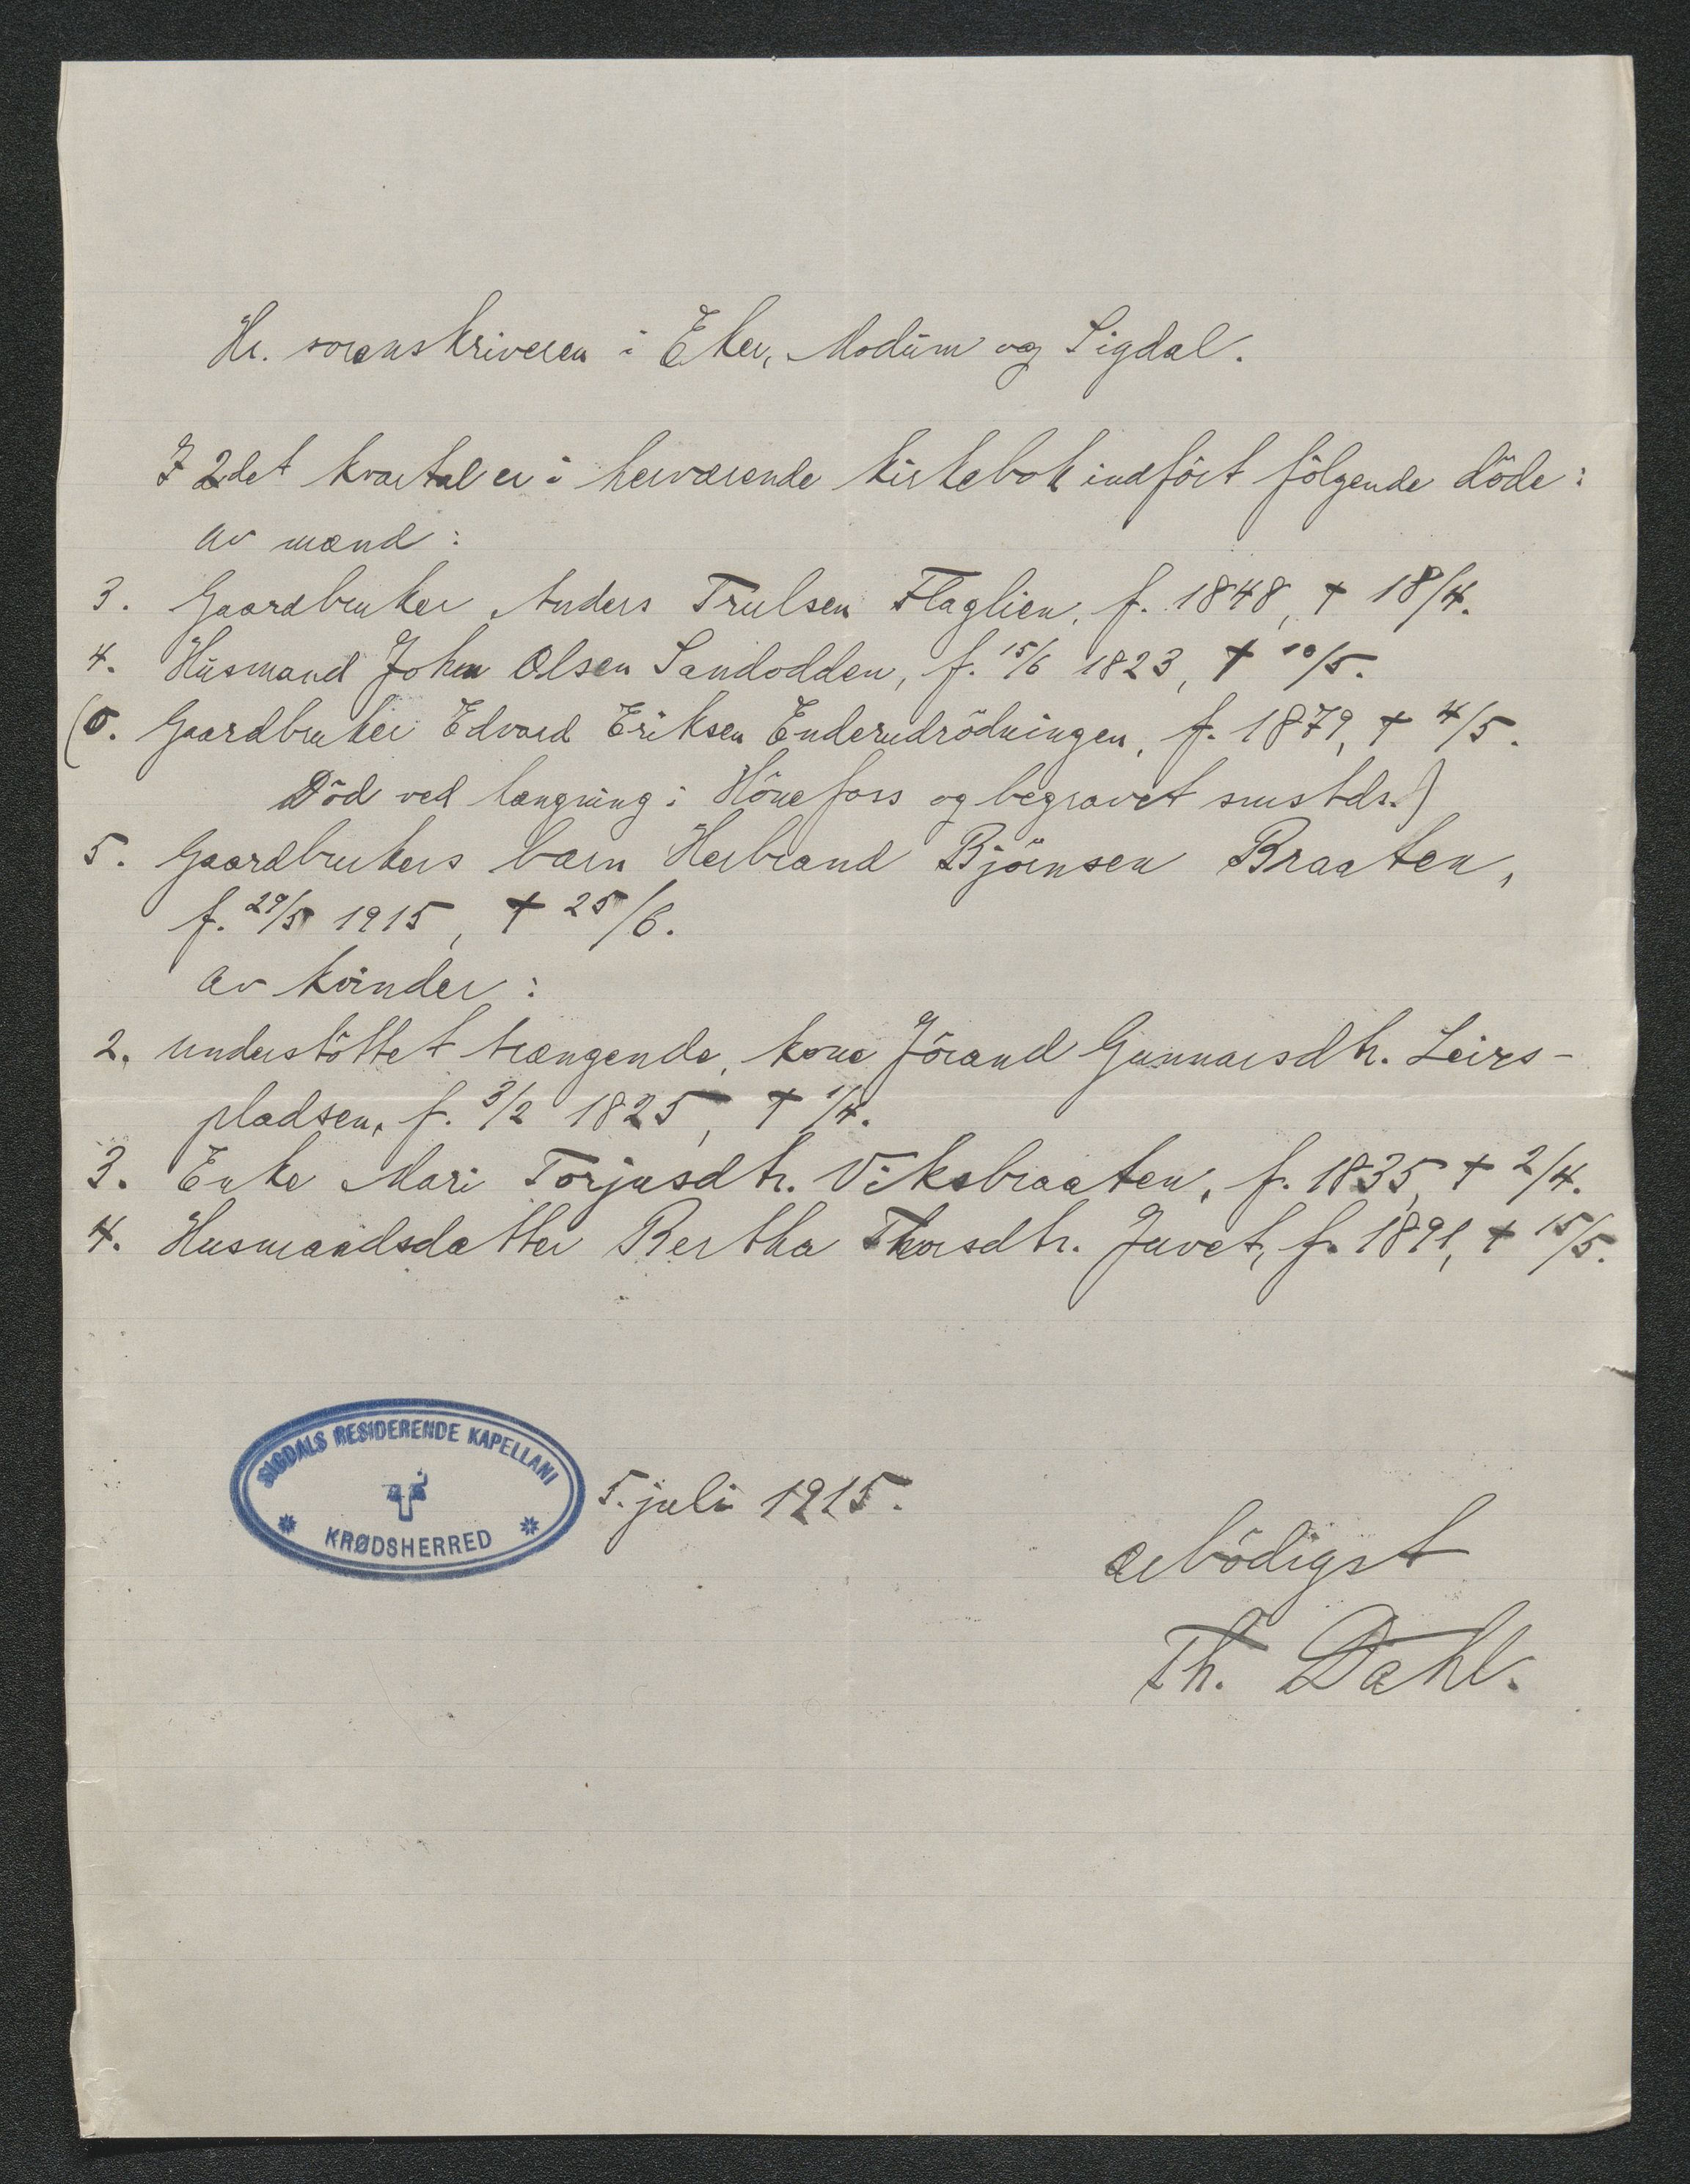 Hr. sorenskriveren i Eker, Modum og Sigdal.
I 2det kvartal er i herværende kirkebok indfört fölgende döde:
av mænd:
3. Gaardbruker Anders Trulsen Flaglien, f. 1848, † 18/4.
4. Husmand John Olsen Sandodden, f. 15/6 1823, † 10/5.
(0. Gaardbruker Edvard Eriksen Enderudrödningen, f. 1879, † 4/5.
Död ved hængning i Hönefoss og begravet smstds.)
5. Gaardbrukers barn Herbrand Björnsen Braaten,
f. 29/5 1915, † 25/6.
av kvinder:
2. understöttet trængende, kone Jörand Gunnarsdtr. Leirs-
pladsen, f. 3/2 1825, † 1/4.
3. Enke Mari Torjusdtr. Viksbraaten, f. 1835, † 2/4.
4. Husmandsdatter Bertha Thorsdtr. Juvet, f. 1891, † 15/5.
SIGDALS RESIDERENDE KAPELLANI
KRØDSHERRED
5. juli 1915.
ærbödigst
Th. Dahl.